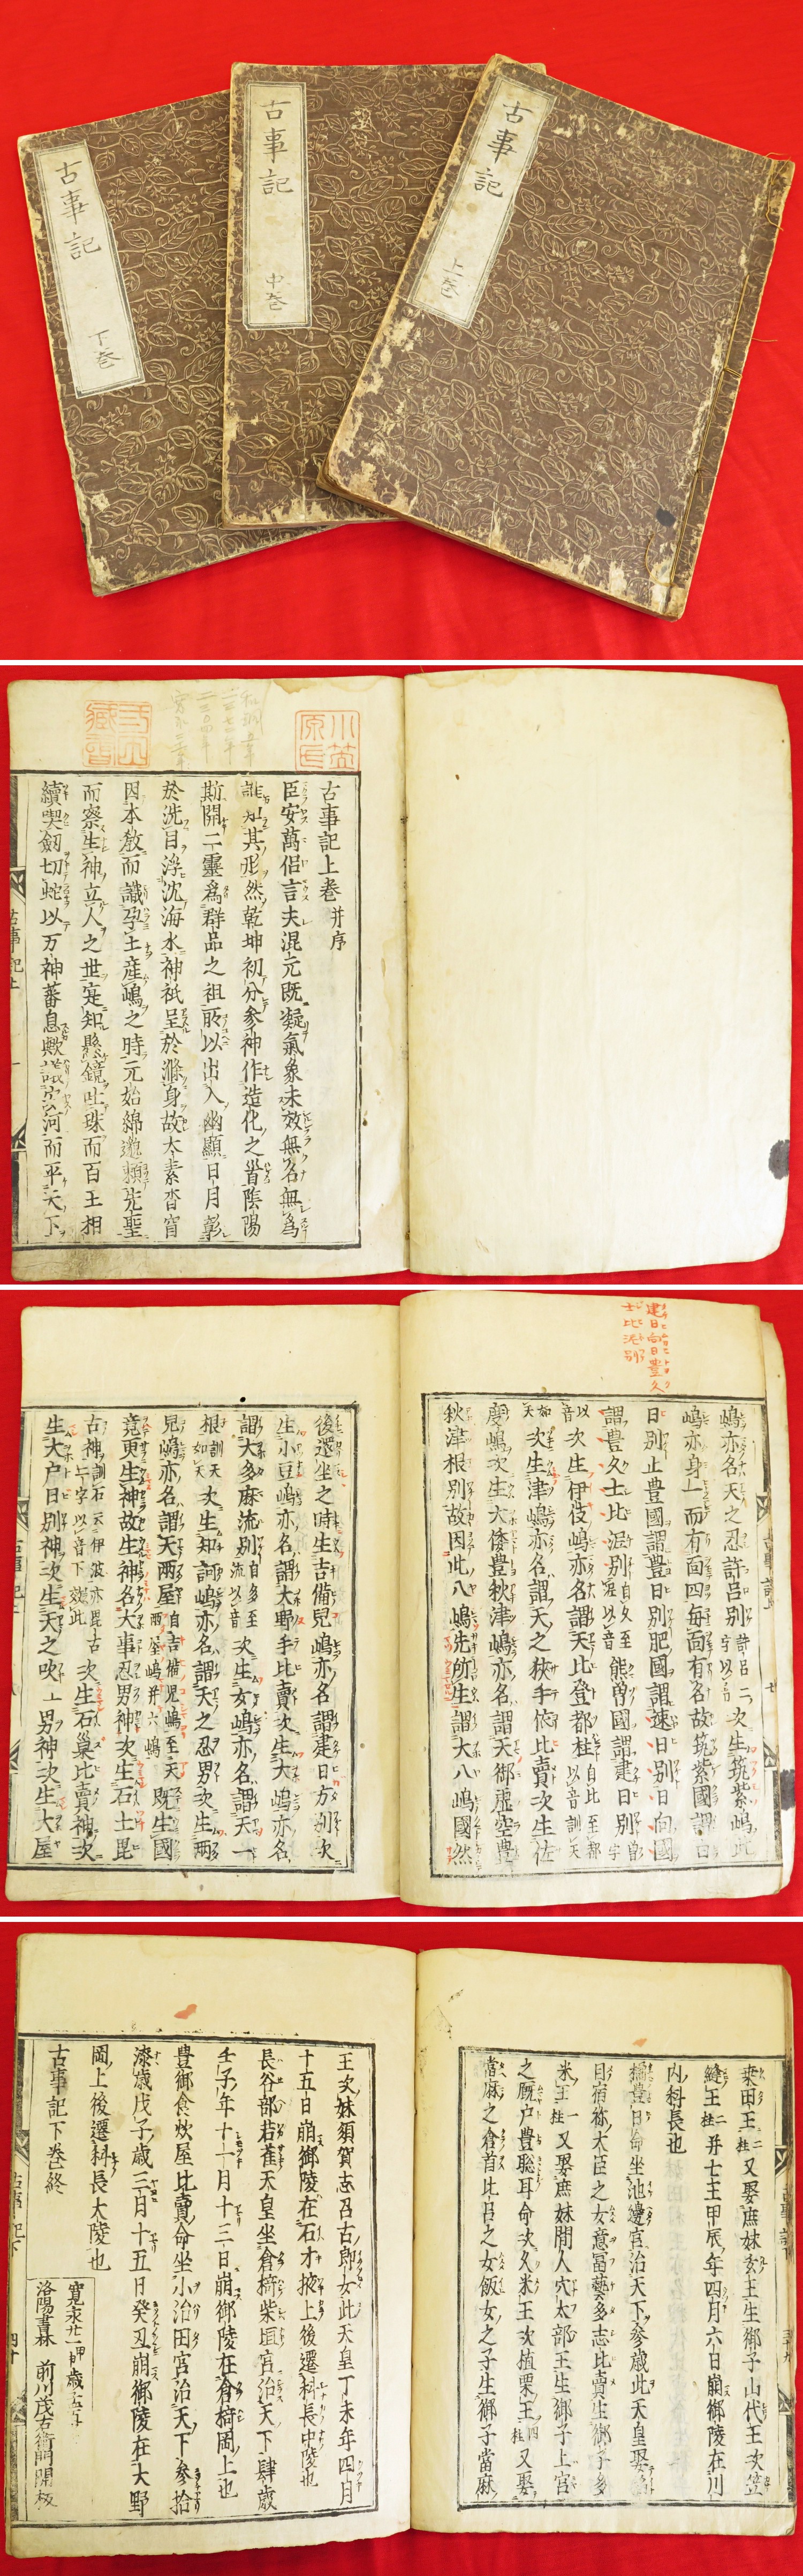 古事記
上巻
古事記
中巻
古事記
下巻
古事記上巻 并序
臣安萬侶言夫混元既凝氣象未效無名無為
誰知其形然乾坤初分参神作造化之首陰陽
斯開二霊為群品之祖所以出入幽顯日月彰
於洗目浮沈海水神祇呈於滌身故太素杳冥
因本教而識孕土産嶋之時元始綿邈頼先聖
而察生神立人之世寔知懸鏡吐珠而百王相
續喫釼切蛇以万神蕃息歟議安河而平天下
建日向日豊久
士比泥別
嶋亦名天之忍許呂別 許呂二字以音 次生筑紫嶋此
嶋亦身一而有面四毎面有名故筑紫國謂白
日別止豊國謂豊日別肥國謂速日別日向國
謂豊久士比泥別 自久至泥以音 熊曽國謂建日別 曽字
以音 次生伊伎嶋亦名謂天比登都柱 自比至都以音訓天
如天 次生津嶋亦名謂天之狭手依比賣次生佐
度嶋次生大倭豊秋津嶋亦名謂天御虚空豊
秋津根別故因此八嶋先所生謂大八嶋國然
後還坐之時生吉備兒嶋亦名謂建日方別次
生小豆嶋亦名謂大野手比賣次生大嶋亦名
謂大多麻流別 自多至流以音 次生女嶋亦名謂天一
根 訓天如天 次生知訶嶋亦名謂天之忍男次生両
兒嶋亦名謂天両屋 自吉備兒嶋至天両屋嶋并六嶋 既生國
竟更生神故生神名大事忍男神次生石土毘
古神 訓石云伊波亦毘古二字以音下效此 次生石巣比賣神次
生大戸日別神次生天之吹上男神次生大屋
桒田王 二柱 又娶庶妹玄王生御子山代王次笠
縫王 二柱 并七王甲辰年四月六日崩御陵在川
内科長也
橘豊日命坐池邊宮治天下参歳此天皇娶稲
目宿祢大臣之女意冨藝多志比賣生御子多
米王 一柱 又娶庶妹間人穴太部王生御子上宮
之厩戸豊聡耳命次久米王次植栗王 四柱 又娶
當麻之倉首比呂之女飯女之子生御子當麻
王次妹須賀志呂古郎女此天皇丁未年四月
十五日崩御陵在石寸掖上後遷科長中陵也
長谷部若雀天皇坐倉椅柴垣宮治天下肆歳
壬子年十一月十三日崩御陵在倉椅岡上也
豊御食炊屋比賣命坐小治田宮治天下参拾
漆歳戊子歳三月十五日癸丑崩御陵在大野
岡上後遷科長大陵也
古事記下巻終
寛永廿一甲申歳
洛陽書林 前川茂右衛門開板